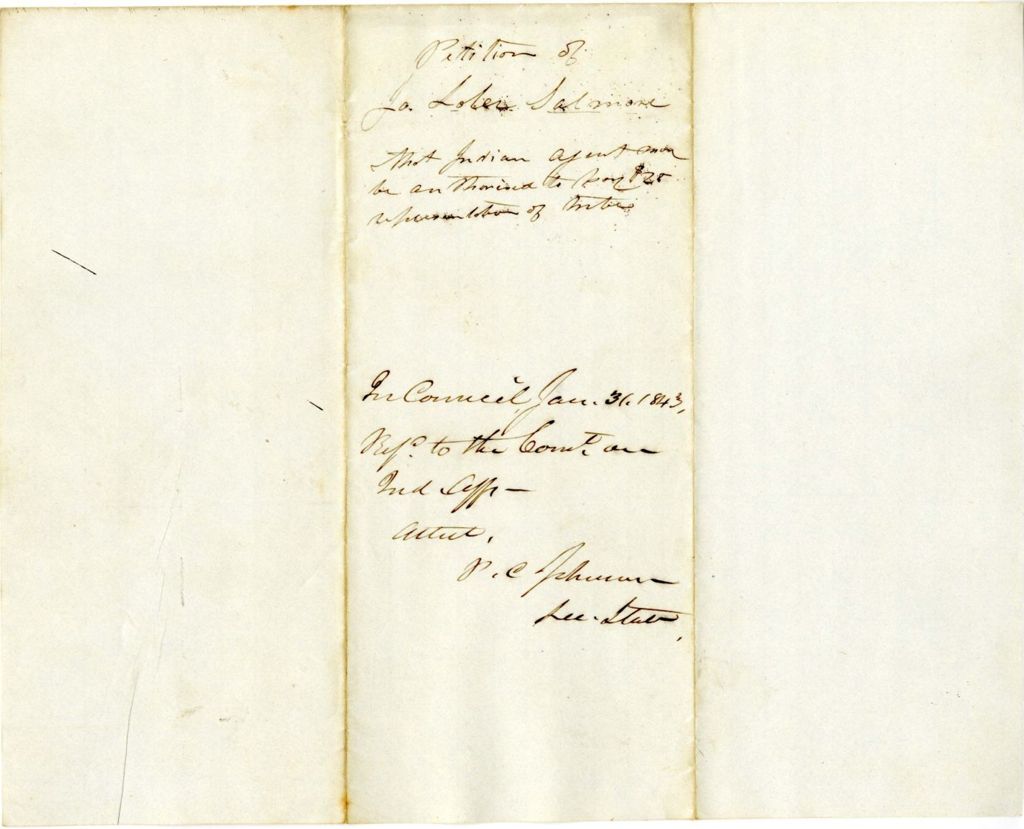 Petition of
Jo. Soler Salmore
that Indian agent may
be authorised to pay $20
representation of tribe
In Council, Jan. 31. 1843,
Refd. to the Comt. on
Ind Aff—
Attest,
P. C Johnson
Sec. State,